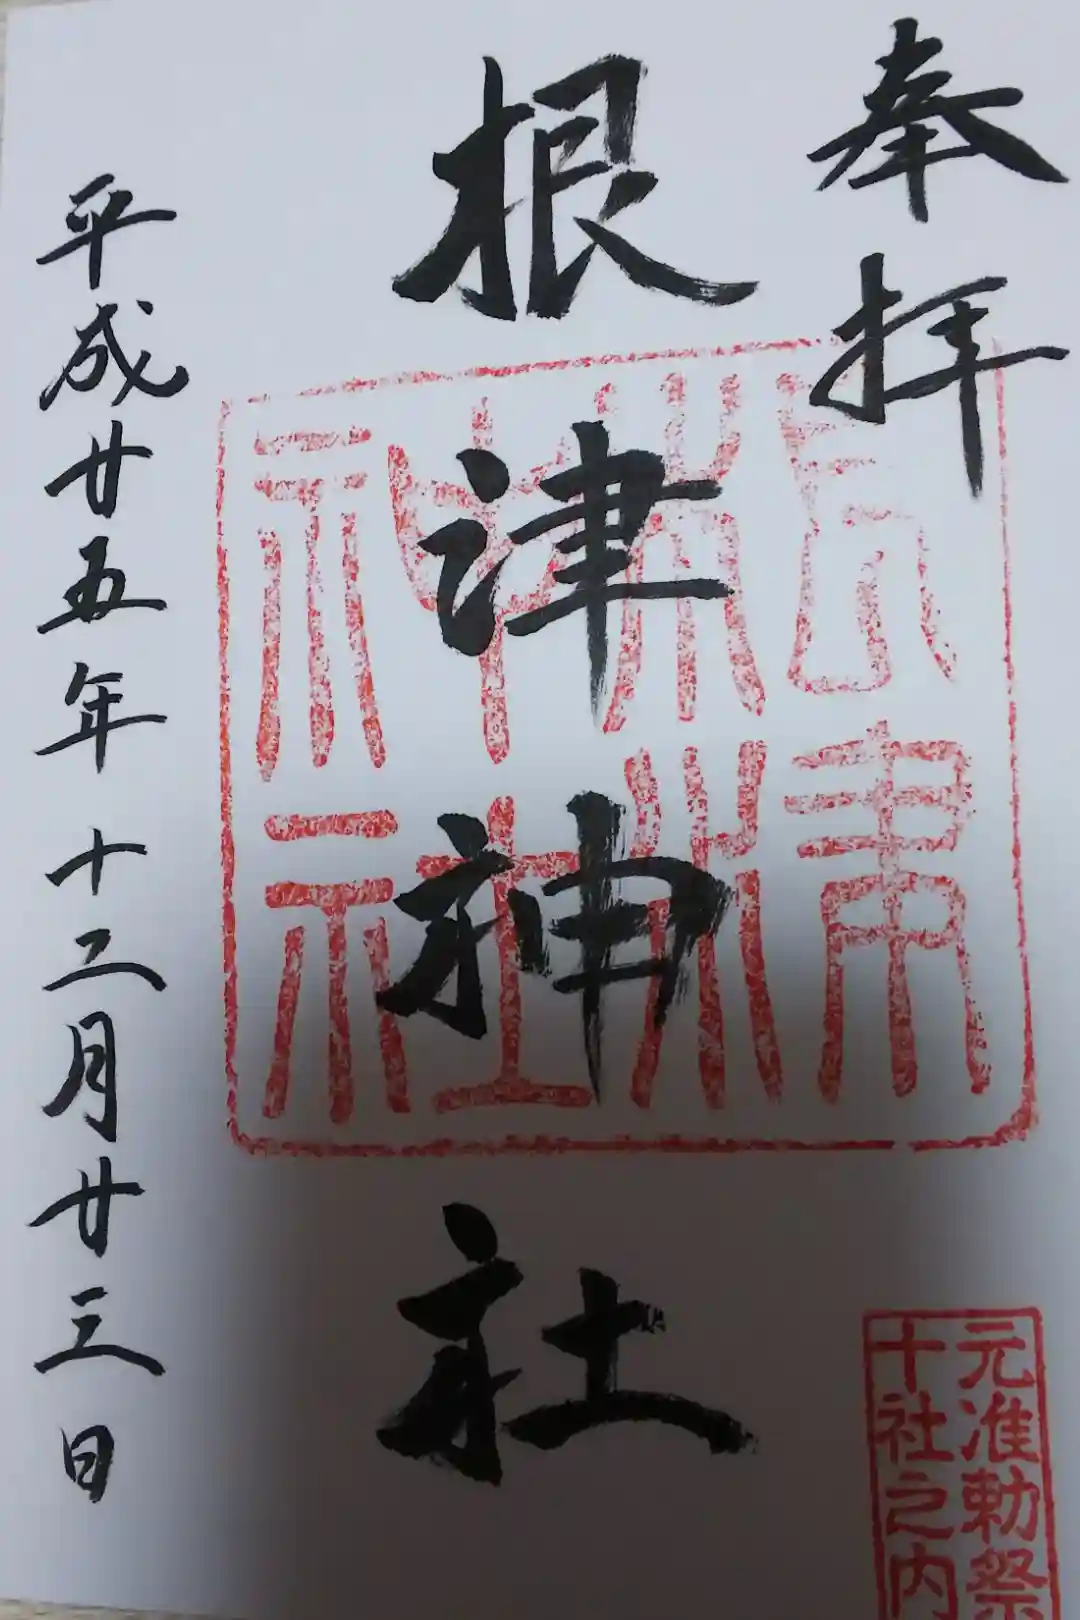 奉拝
根津神社
根津神社
元准勅祭
十社之内
平成廿五年十二月廿三日